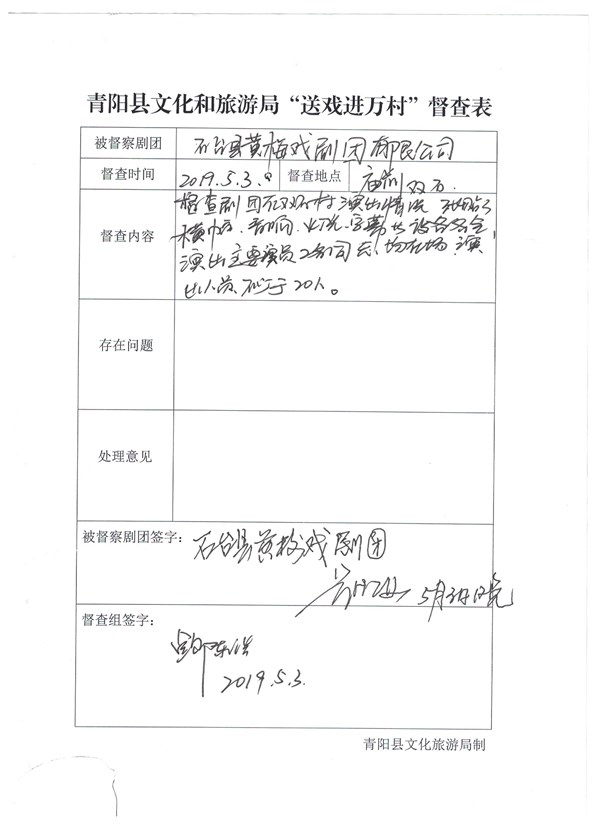 青阳县文化和旅游局“送戏进万村”督查表
被督察剧团 石台县黄梅戏剧团有限公司
督查时间 2019.5.3. 督查地点 庙前双石
督查内容
督查剧团在双石村演出情况
横幅、音响、灯光、字幕 设备
演出主要演员 在场 演
出人员不少于20人。
存在问题
处理意见
被督察剧团签字：石台县黄梅戏剧团
5月3日
督查组签字：
2019.5.3.
青阳县文化旅游局制